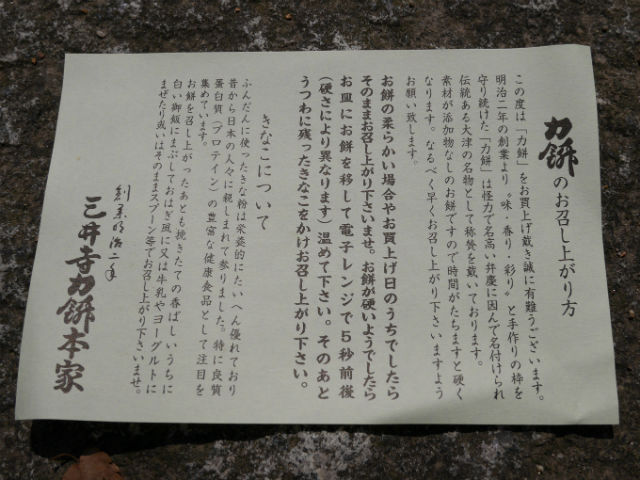 力餅のお召し上がり方
この度は「力餅」をお買上げ戴き誠に有難うございます。
明治二年の創業より〝味・香り・彩り〟と手作りの枠を
守り続けた「力餅」は怪力で名高い弁慶に因んで名付けられ
伝統ある大津の名物として称賛を戴いております。
素材が添加物なしのお餅ですので時間がたちますと硬く
なります。なるべく早くお召し上がり下さいますよう
お願い致します。
お餅の柔らかい場合やお買上げ日のうちでしたら
そのままお召し上がり下さいませ。お餅が硬いようでしたら
お皿にお餅を移して電子レンジで5秒前後
(硬さにより異なります)温めて下さい。そのあと
うつわに残ったきなこをかけお召し上がり下さい。
きなこについて
ふんだんに使ったきな粉は栄養的にたいへん優れており
昔から日本の人々に親しまれて参りました。特に良質
蛋白質(プロテイン)の豊富な健康食品として注目を
集めています。
お餅を召し上がったあとも挽きたての香ばしいうちに
白い御飯にまぶしておはぎ風に又は牛乳やヨーグルトに
まぜたり或いはそのままスプーン等でお召し上がり下さいませ。
創業明治二年
三井寺力餅本家